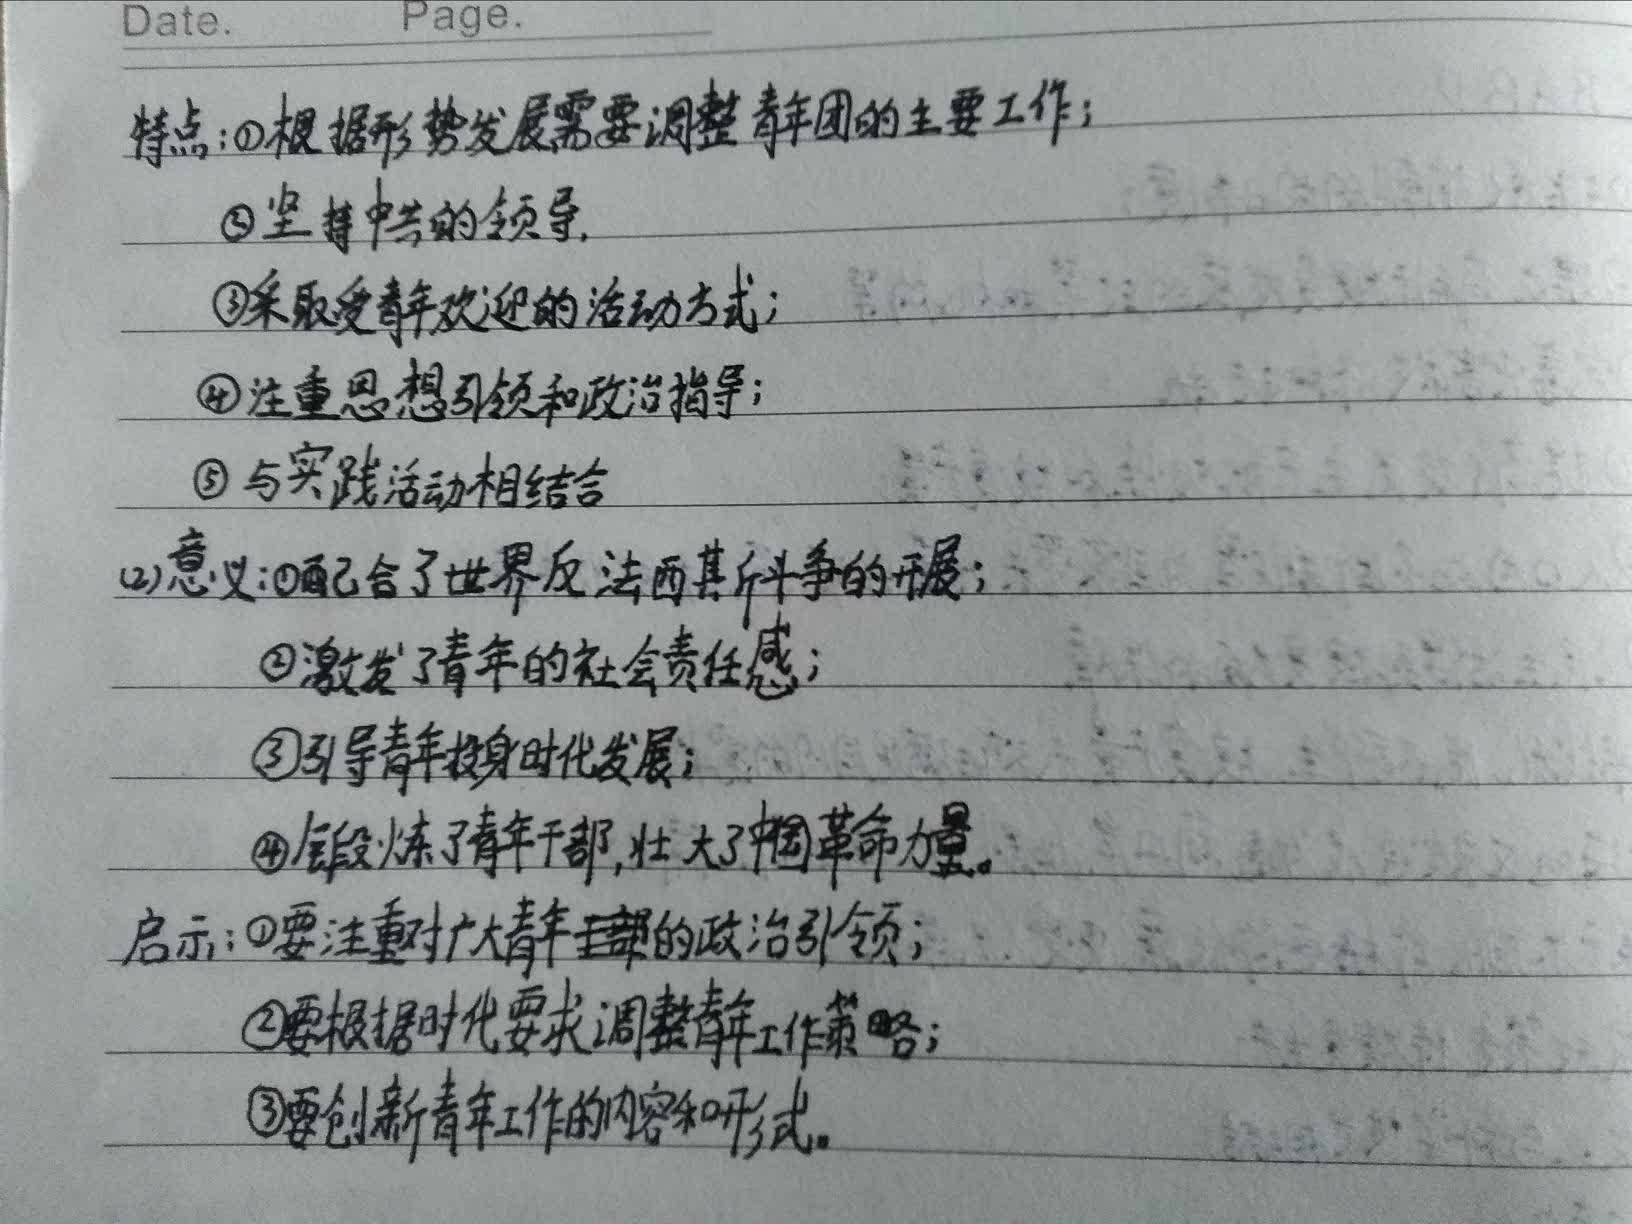 Date. Page.
特点:①根据形势发展需要调整青年团的主要工作;
②坚持中共的领导.
③采取受青年欢迎的活动方式;
④注重思想引领和政治指导;
⑤与实践活动相结合
(2)意义:①配合了世界反法西其斤斗争的开展;
②激发了青年的社会责任感;
③引导青年投身时代发展;
④锻炼了青年干部,壮大了中国革命力量。
启示:①要注重对广大青年的政治引领;
②要根据时代要求调整青年工作策略;
③要创新青年工作的内容和形式。